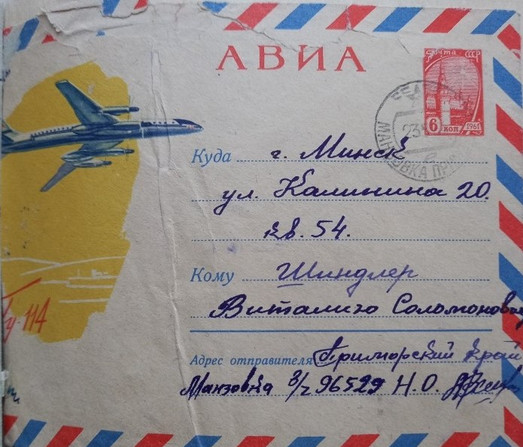 АВИА
ПОЧТА СССР
6 КОП 1961
МАНЗОВКА ПРИМ
Куда г. Минск
ул. Калинина 20.
кв. 54.
Кому Шиндлер
Виталию Соломонович
Ту-114
Адрес отправителя Приморский край
Манзовка в/ч 96529 Н.О.